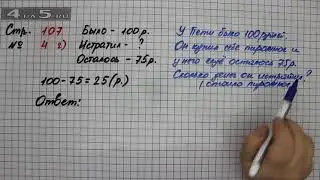 4APA5.RU
Стр. 107
№ 4 2)
Было - 100 р.
Истратил - ?
Осталось - 75р.
100-75=25 (р.)
Ответ:
У Пети было 100 рублей.
Он купил себе пирожное и
у него ещё осталось 75р.
Сколько денег он истратил?
(стоило пирожное)